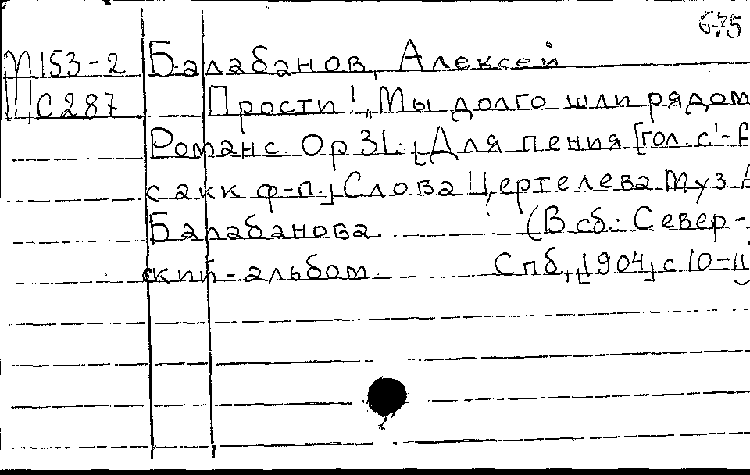 675
М 153-2 Балабанов, Алексей
Ц С 287 Прости! „Мы долго шли рядом
Романс. Op 31. [Для пения [гол. с'-
с акк ф-п.] Слова Цертелева. Муз.
Балабанова. (В сб.: Север-
ский альбом. Спб, [1904] с 10-11